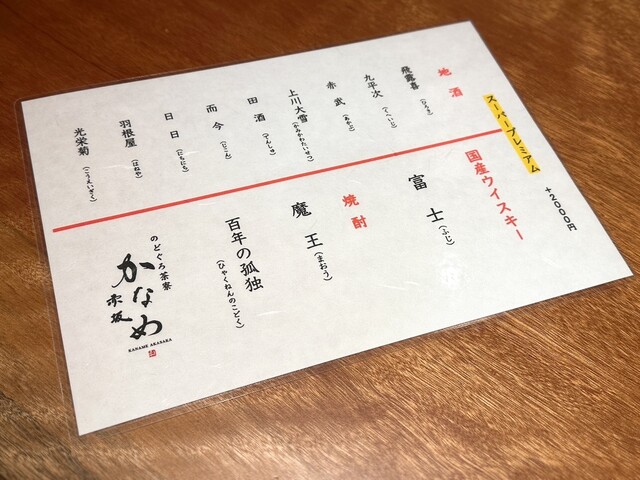 スーパープレミアム
+2000円
地酒
飛露喜(ひろき)
九平次(くへいじ)
赤武(あかぶ)
上川大雪(かみかわたいせつ)
田酒(でんしゅ)
而今(じこん)
日日(にちにち)
羽根屋(はねや)
光栄菊(こうえいぎく)
国産ウイスキー
富士(ふじ)
焼酎
魔王(まおう)
百年の孤独(ひゃくねんのこどく)
のどぐろ茶寮
かなめ
赤坂
KANAME AKASAKA